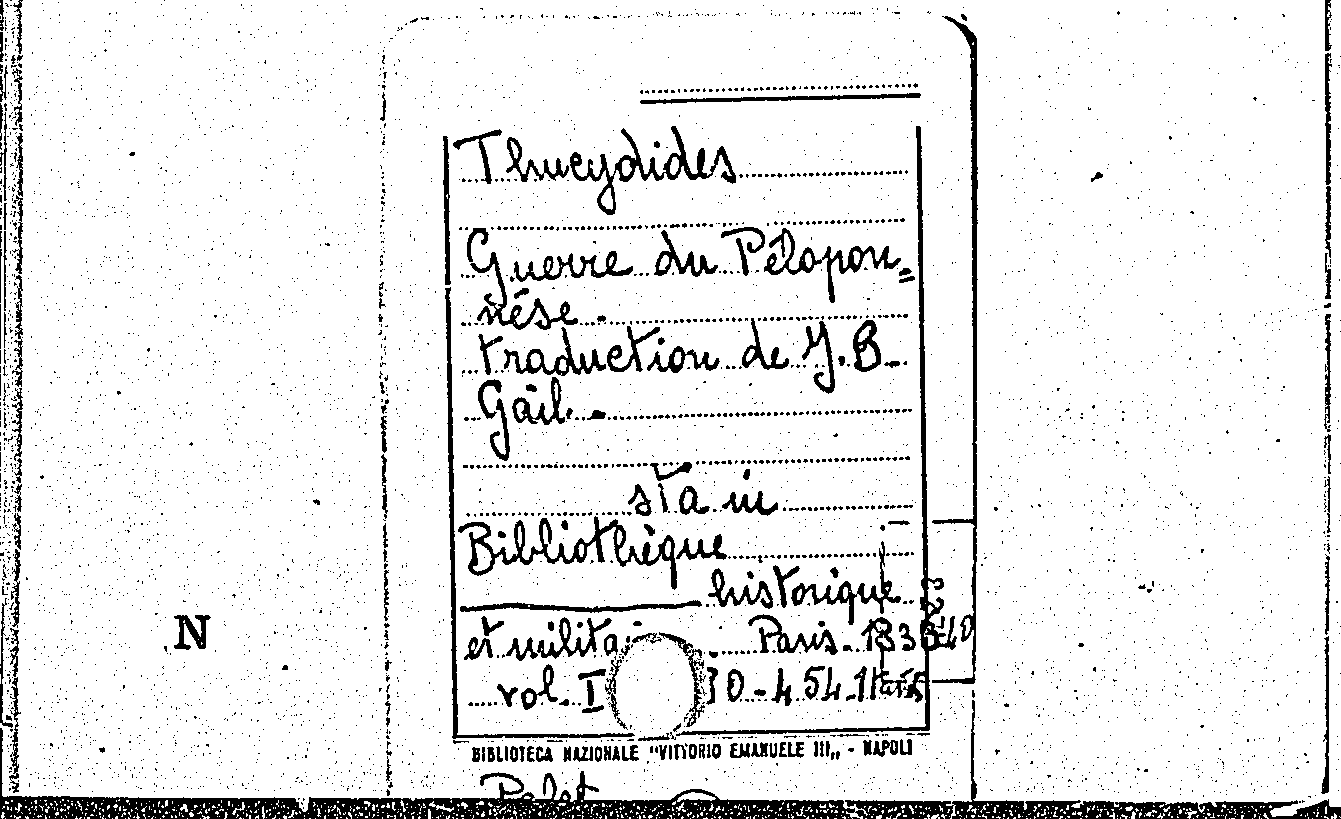 Thucydides
Guerre du Pélopon=
nése.
traduction de J.B.
Gail.
sta in
Bibliothèque
historique
et milita
N
Paris. 1836-40
vol. I
BIBLIOTECA NAZIONALE "VITTORIO EMANUELE III„ - NAPOLI